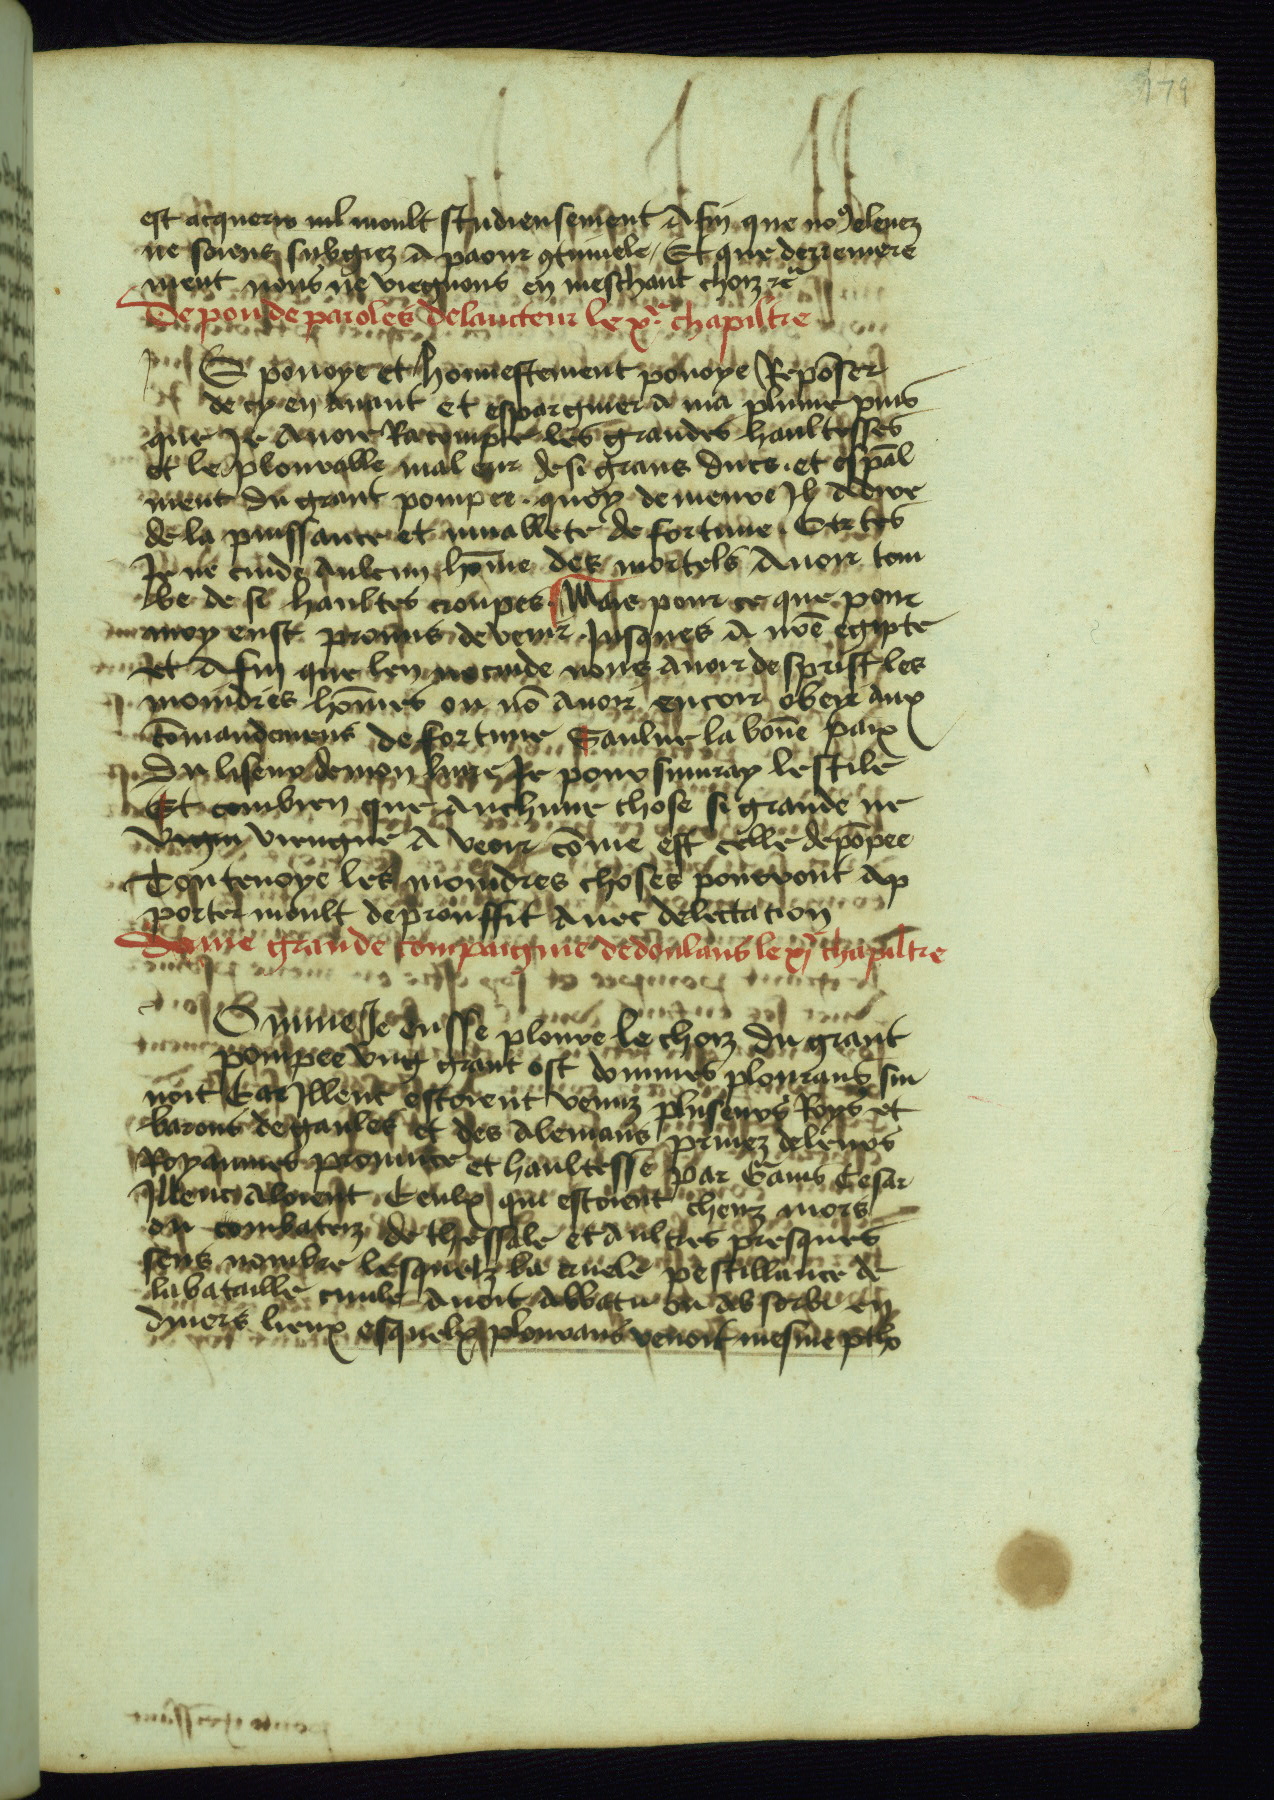 179
est acquerir nl moult studieusement Afin que noꝰ eleuez
ne soiens subgiez A paour ꝯtinuele / Et que derreniere
ment nous ne viegnons en meschant choiz &c
De pou de paroles de laucteur le xᵉ chapiltre
Se pouoye et honnestement pouoye Repōser
de cy en auant et espargnier a ma plume puis
que Je Auoie Racompte les grandes haultesses
et le plourable mal eur de si grans ducs. et espāl
ment du grant pompee. quoy demeure Il A dire
de la puissance et muablete de fortune. Certes
Je ne cuide Aulcun hōme des mortels Auoir tom
be de si haultes croupes. Mais pour ce que pour
moy eust promis de venir Jusques A nrē egipte
et Afin que len ne cuide nous auoir desprisf les
moindres hōmes ou nō auoir encor obeye aux
cōmandemens de fortune Saulue la bōne paix
Du liseur de mon liure Je poursuiuray le stile
Et combien que Auchune chose si grande ne
viengne A veoir cōme est celle de pōpee
Toutenoye les moindres choses pourront Ap
porter moult de prouffit auec delectation
De une grande compaignie de doulans le xjᵉ chapiltre
Comme Je eusse ploure le choiz du grant
pompee vng grant ost dommes plourans sui
uoit Car Illenc estoient venuz pluseurs Roys et
barons de gaules et des Alemans priuez de leurs
Royaumes prouince et haultesse par Gaius Cesar
Illenc Aloient Ceulx qui estoient cheuz mors
ou combatenz de thessale et Aultres presques
sens nombre lesquelz la cruele pestillance de
la bataille ciuile Auoit Abbatu ou absorbe en
diuers lieux esquelx plourans venoit mesme ptho